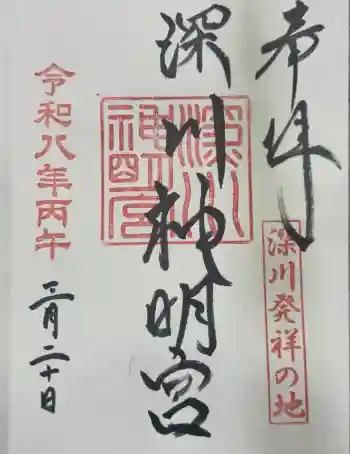 奉拝
深川発祥の地
深川神明宮
深川神明宮
令和八年丙午
三月二十日